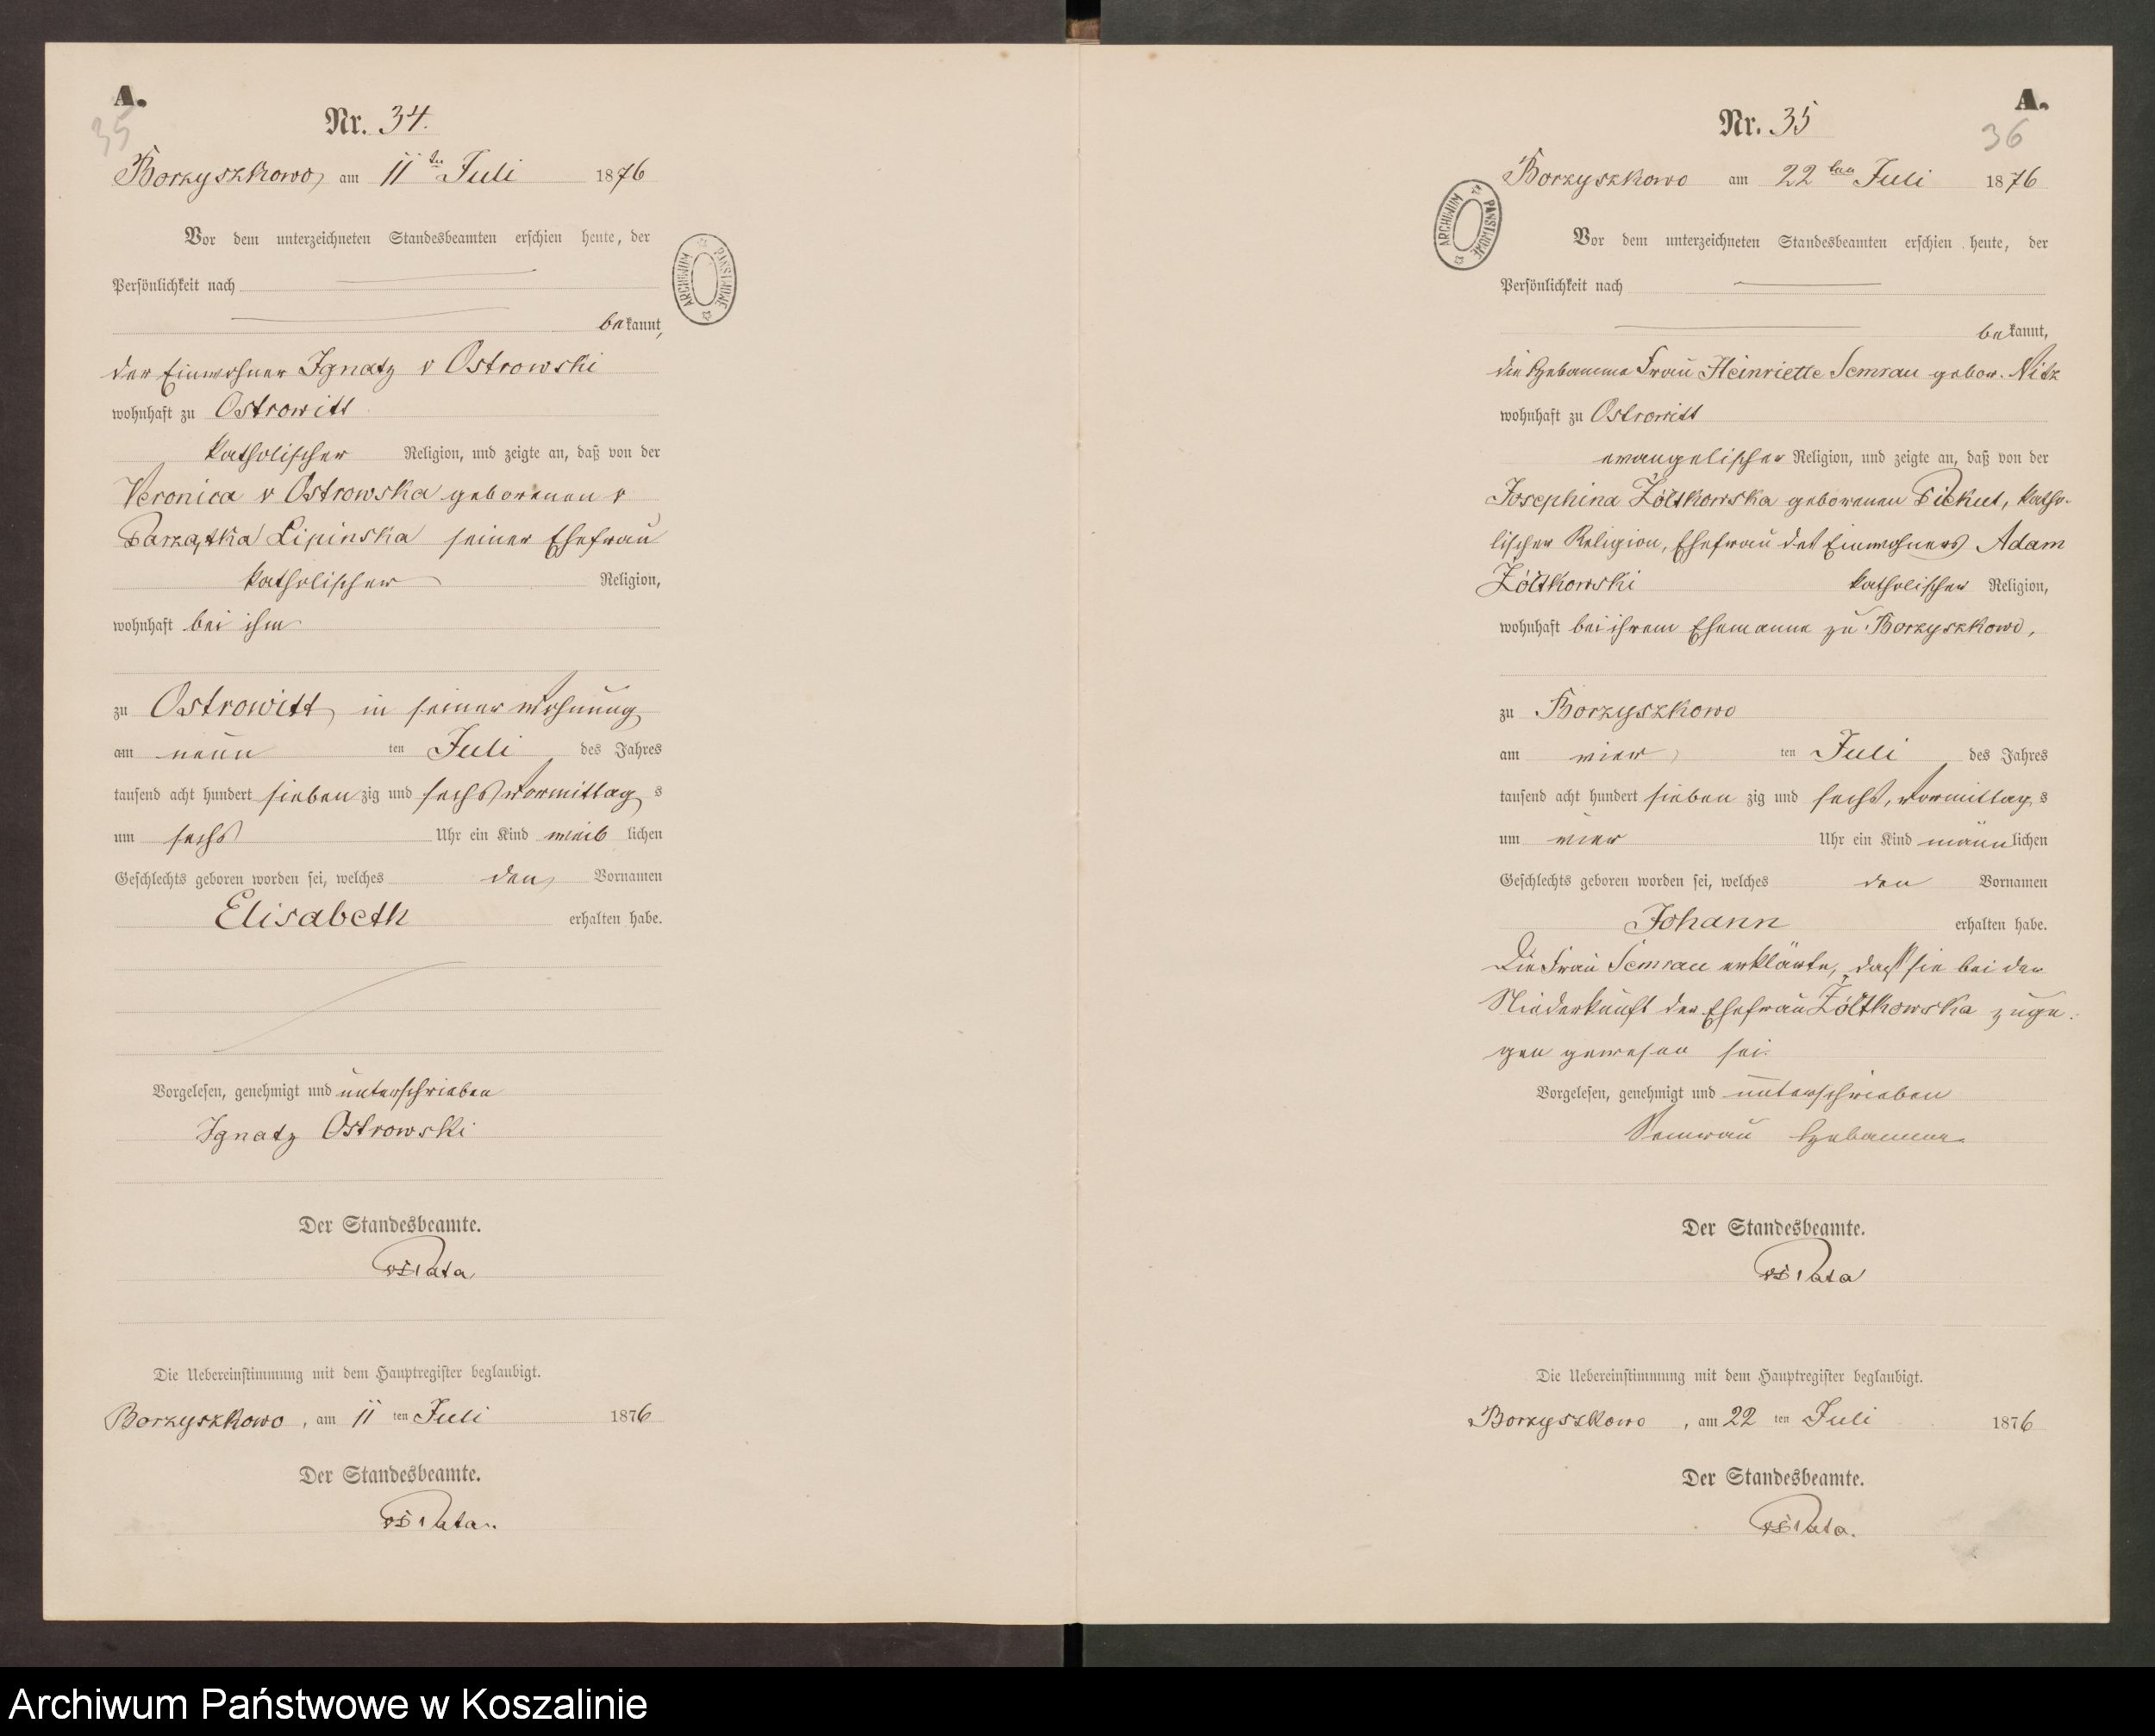 A.
35
Nr. 34.
Borzyszkowo, am 11ten Juli 1876
Vor dem unterzeichneten Standesbeamten erschien heute, der
Persönlichkeit nach
bekannt,
der Einwohner Ignatz v Ostrowski
wohnhaft zu Ostrowitt
katholischer Religion, und zeigte an, daß von der
Veronica v Ostrowska geborenen v
Parzątka Lipinska seiner Ehefrau
katholischer Religion,
wohnhaft bei ihm
zu Ostrowitt, in seiner Wohnung
am neun ten Juli des Jahres
tausend acht hundert sieben zig und sechs Vormittag s
um sechs Uhr ein Kind weib lichen
Geschlechts geboren worden sei, welches den Vornamen
Elisabeth erhalten habe.
Vorgelesen, genehmigt und unterschrieben
Ignatz Ostrowski
Der Standesbeamte.
Die Uebereinstimmung mit dem Hauptregister beglaubigt.
Borzyszkowo, am 11 ten Juli 1876
Der Standesbeamte.
ARCHIWUM PAŃSTWOWE
A.
36
Nr. 35
Borzyszkowo am 22ten Juli 1876
Vor dem unterzeichneten Standesbeamten erschien heute, der
Persönlichkeit nach
bekannt,
die Hebamme Frau Heinriette Semrau gebor. Nitz
wohnhaft zu Ostrowitt
evangelischer Religion, und zeigte an, daß von der
Josephina Żółtkowska geborenen Piekut, katho-
lischer Religion, Ehefrau des Einwohners Adam
Żółtkowski katholischer Religion,
wohnhaft bei ihrem Ehemanne zu Borzyszkowo,
zu Borzyszkowo
am vier ten Juli des Jahres
tausend acht hundert sieben zig und sechs, Vormittag s
um vier Uhr ein Kind männ lichen
Geschlechts geboren worden sei, welches den Vornamen
Johann erhalten habe.
Die Frau Semrau erklärte, daß sie bei der
Niederkunft der Ehefrau Żółtkowska zuge-
gen gewesen sei.
Vorgelesen, genehmigt und unterschrieben
Semrau Hebamme
Der Standesbeamte.
Die Uebereinstimmung mit dem Hauptregister beglaubigt.
Borzyszkowo, am 22 ten Juli 1876
Der Standesbeamte.
ARCHIWUM PAŃSTWOWE
Archiwum Państwowe w Koszalinie